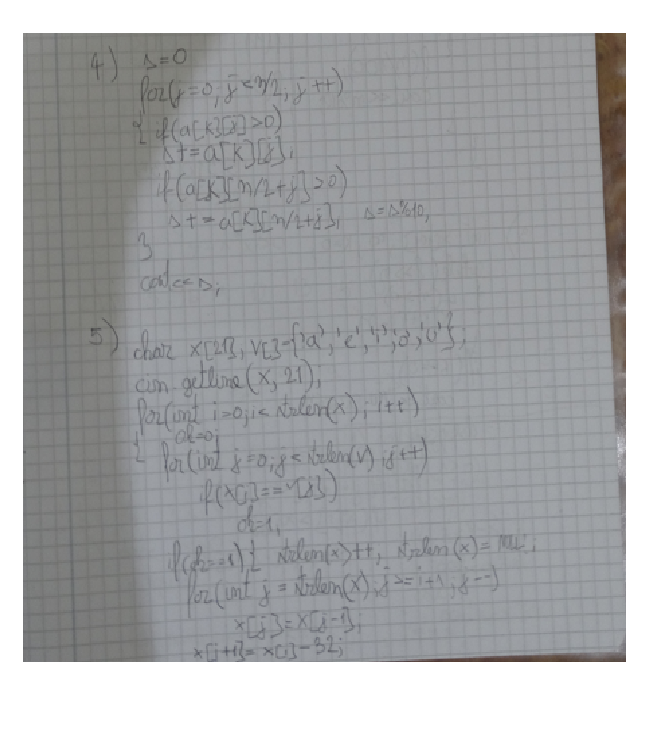 4) s=0
for(j=0; j<n/2, j++)
{ if(a[k][j]>0)
s+=a[k][j];
if(a[k][n/2+j]>0)
s+=a[k][n/2+j]; s=s%10;
}
cout<<s;
5) char x[21], v[]={'a','e','i','o','u'};
cin getline(x, 21);
for(int i=0;i< strlen(x); i++)
{ ok=0;
for(int j=0;j< strlen(v);j++)
if(x[i]==v[j])
ok=1;
if(ok==1){ strlen(x)++; strlen(x)=
for(int j = strlen(x), j>=i+1, j--)
x[j]=x[j-1];
x[i+1]=x[i]-32;